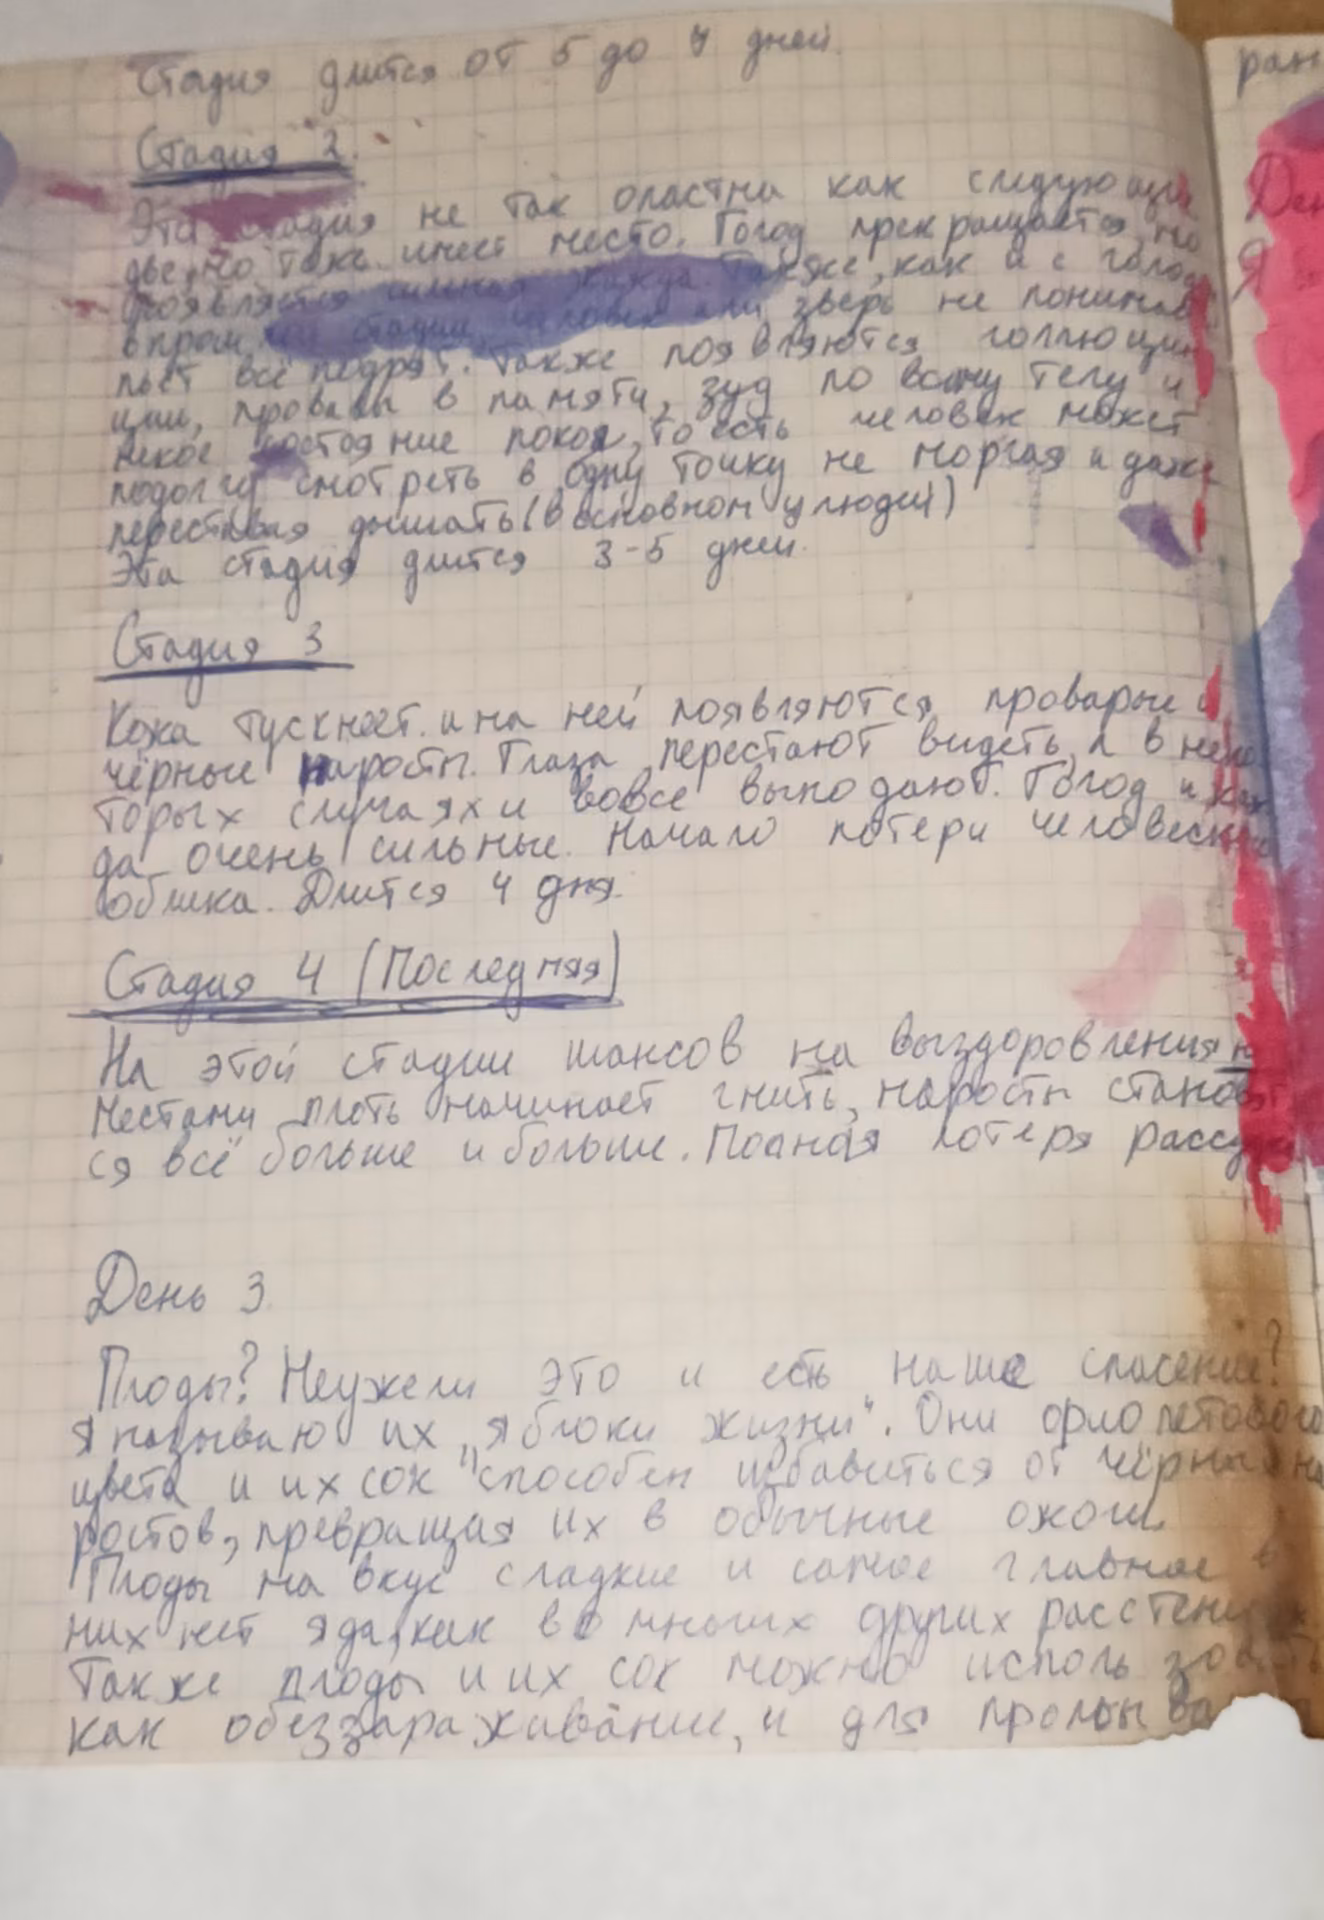 Стадия длится от 5 до 7 дней.
Стадия 2.
Эта стадия не так опастна как следующие
две, но тоже имеет место. Голод прекращается, но
появляется сильная жажда. Также, как и с голод
в прош стадии человек или зверь не понимая
пьёт всё подрят. Также появляются голлюци
ции, провалы в памяти, зуд по всему телу и
некое состояние покоя, то есть человек может
подолгу смотреть в одну точку не моргая и даже
переставая дышать (в основном у людей)
Эта стадия длится 3-5 дней.
Стадия 3
Кожа тускнеет и на ней появляются провары и
чёрные наросты. Глаза перестают видеть, а в неко
торых случаях и вовсе выподают. Голод и жаж
да очень сильные. Начало потери человеск
облика. Длится 4 дня.
Стадия 4 (Последняя)
На этой стадии шансов на выздоровления н
Местами плоть начинает гнить, наросты становят
ся всё больше и больше. Полная потеря рассуд
День 3.
Плоды? Неужели это и есть наше спасение?
Я называю их "яблоки жизни". Они фиолетового
цвета и их сок способен избавиться от чёрных на
ростов, превращая их в обычные ожоги.
Плоды на вкус сладкие и самое главное в
них нет яда, как во многих других расстениях
Также плоды и их сок можно использовать
как обеззараживание, и для промыва
ран
Ден
Я